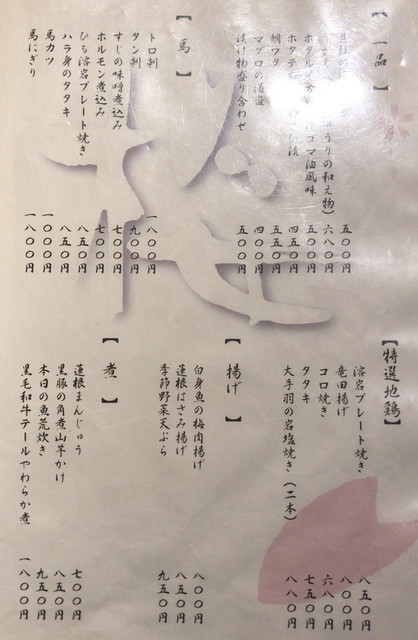 【一品】
五〇〇円
うりの和え物) 六八〇円
ゴマ油風味 五〇〇円
ホタテ 四五〇円
鯛ワタ 五五〇円
マグロの酒盗 四〇〇円
漬け物盛り合わせ 五〇〇円
【馬】
トロ刺 一八〇〇円
タン刺 九〇〇円
すじの味噌煮込み 七〇〇円
ホルモン煮込み 七〇〇円
ひも溶岩プレート焼き 八五〇円
ハラ身のタタキ 八五〇円
馬カツ 一〇〇〇円
馬にぎり 一八〇〇円
【特選地鶏】
溶岩プレート焼き 八五〇円
竜田揚げ 八〇〇円
コロ焼き 六八〇円
タタキ 七五〇円
大手羽の岩塩焼き(二本) 八八〇円
【揚げ】
白身魚の梅肉揚げ 八〇〇円
蓮根はさみ揚げ 八五〇円
季節野菜天ぷら 九五〇円
【煮】
蓮根まんじゅう 七〇〇円
黒豚の角煮山芋かけ 八五〇円
本日の魚荒炊き 九五〇円
黒毛和牛テールやわらか煮 一八〇〇円